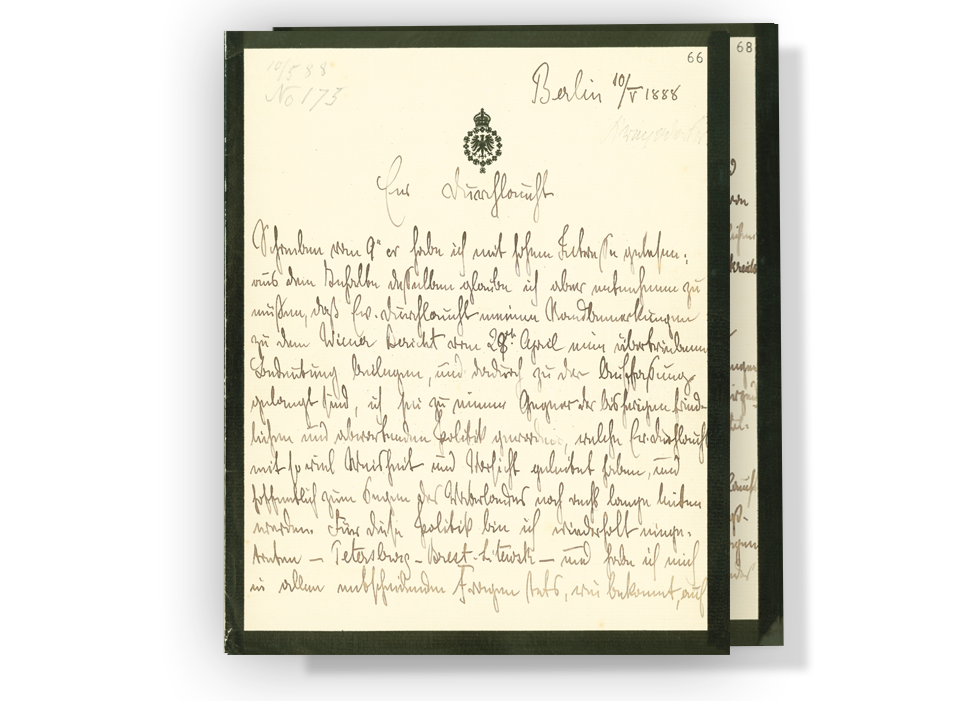 10/5 88
No 173
66
68
Berlin 10/V 1888
Ew Durchlaucht
Schreiben vom 9ten er habe ich mit hohem Interesse gelesen;
aus dem Inhalte desselben glaube ich aber entnehmen zu
müßen, daß Ew. Durchlaucht meinen Randbemerkungen
zu dem Wiener Bericht vom 28ten April eine übertriebene
Bedeutung beilegen, und dadurch zu der Auffaßung
gelangt sind, ich sei zu einem Gegner der bisherigen fried-
lichen und abwartenden Politik geworden, welche Ew. Durchlaucht
mit so viel Weisheit und Vorsicht geleitet haben, und
hoffentlich zum Segen des Vaterlandes noch recht lange leiten
werden. Für diese Politik bin ich wiederholt einge-
treten – Petersburg – Brest-Litewsk – und habe ich mich
in allen entscheidenden Fragen stets, wie bekannt, auf